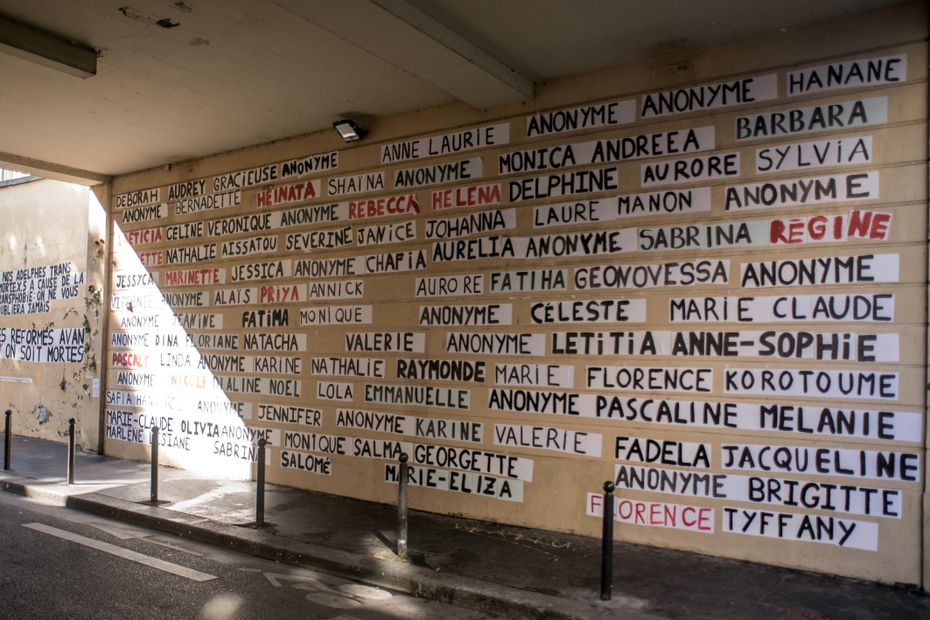 NOS ADELPHES TRANS
MORTEXS À CAUSE DE LA
TRANSPHOBIE: ON NE VOUS
OUBLIERA JAMAIS
RÉFORMÉS AVAN
ON SOIT MORTES
DEBORAH AUDREY GRACIEUSE ANONYME ANNE LAURIE ANONYME ANONYME HANANE
ANONYME BERNADETTE HEINATA SHAÏNA ANONYME MONICA ANDREEA BARBARA
LAETICIA CELINE VERONIQUE ANONYME REBECCA HELENA DELPHINE AURORE SYLVIA
NATHALIE AISSATOU SEVERINE JANICE JOHANNA LAURE MANON ANONYME
JESSYCA MARINETTE JESSICA ANONYME CHAFIA AURELIA ANONYME SABRINA RÉGINE
ANONYME ALAÏS PRIYA ANNICK AURORE FATIHA GEONOVESSA ANONYME
ANONYME FATIMA MONIQUE ANONYME CÉLESTE MARIE CLAUDE
ANONYME DINA FLORIANE NATACHA VALERIE ANONYME LETITIA ANNE-SOPHIE
PASCALE LINDA ANONYME KARINE NATHALIE RAYMONDE MARIE FLORENCE KOROTOUME
ANONYME NICOLE NOEL LOLA EMMANUELLE ANONYME PASCALINE MELANIE
SAFIA ANONYME JENNIFER ANONYME KARINE VALERIE FADELA JACQUELINE
MARIE-CLAUDE OLIVIA ANONYME MONIQUE SALMA GEORGETTE ANONYME BRIGITTE
MARLÈNE SABRINA SALOMÉ MARIE-ELIZA FLORENCE TYFFANY